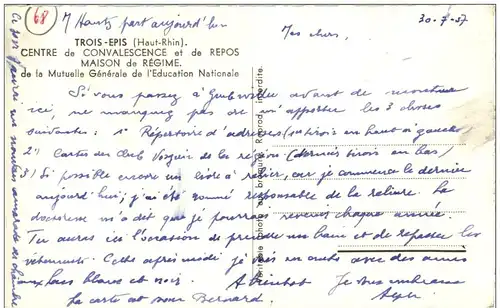 68
M Hautz part aujourd'hui
30-7-57
Mes chers,
TROIS-EPIS (Haut-Rhin).
CENTRE de CONVALESCENCE et de REPOS
MAISON de RÉGIME.
de la Mutuelle Générale de l'Education Nationale
Si vous passez à avant de monter
ici, ne manquez pas de m'apporter les 3 choses
suivantes : 1° Répertoire d'adresses (1er tiroir en haut à gauche)
2) Cartes du Club Vosgien de la région (dernier tiroir en bas)
3) Si possible encore un livre à relier, car je commence le dernier
aujourd'hui ; j'ai été nommé responsable de la reliure. La
doctoresse m'a dit que je pourrais revenir chaque année.
Tu auras ici l'occasion de prendre un bain et de repasser les
vêtements. Cette après midi je vais en auto avec des amis
aux lacs blanc et noir. A bientôt Je vous embrasse
La carte est pour Bernard.
interdite.
Reprod.